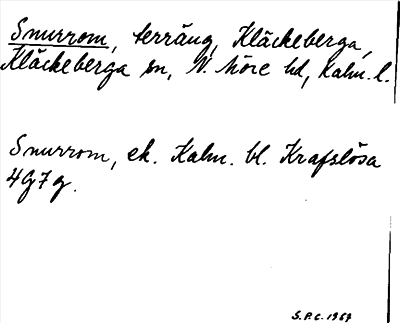 Snurrom, terräng, Kläckeberga,
Kläckeberga sn, N. Möre hd, Kalm. l.
Snurrom, ek. Kalm. bl. Krafslösa
4G7g.
S.P.C. 1969